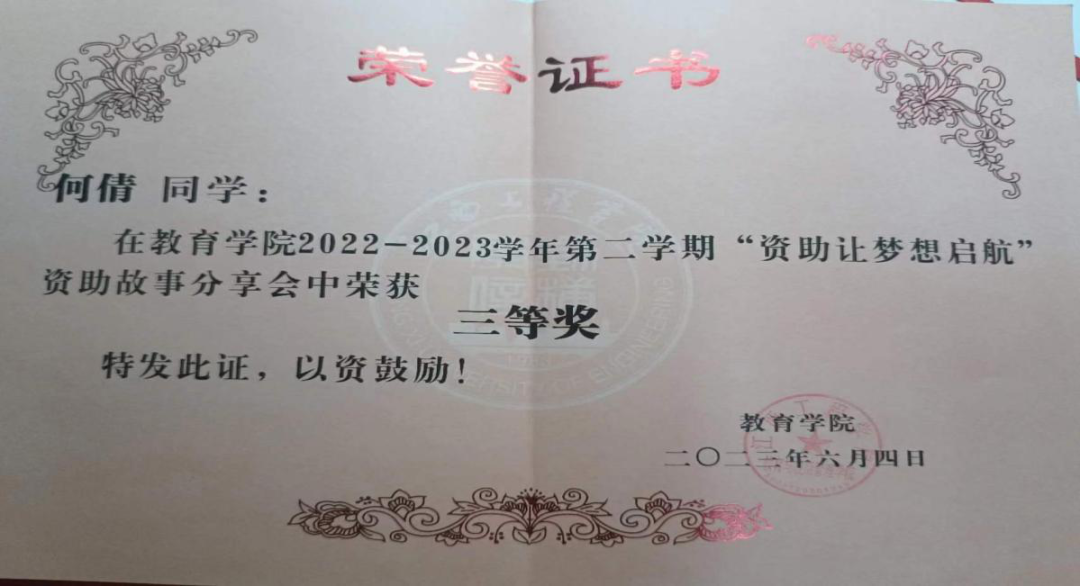 荣誉证书
何倩 同学：
在教育学院2022-2023学年第二学期“资助让梦想启航”
资助故事分享会中荣获
三等奖
特发此证，以资鼓励！
教育学院
二〇二三年六月四日